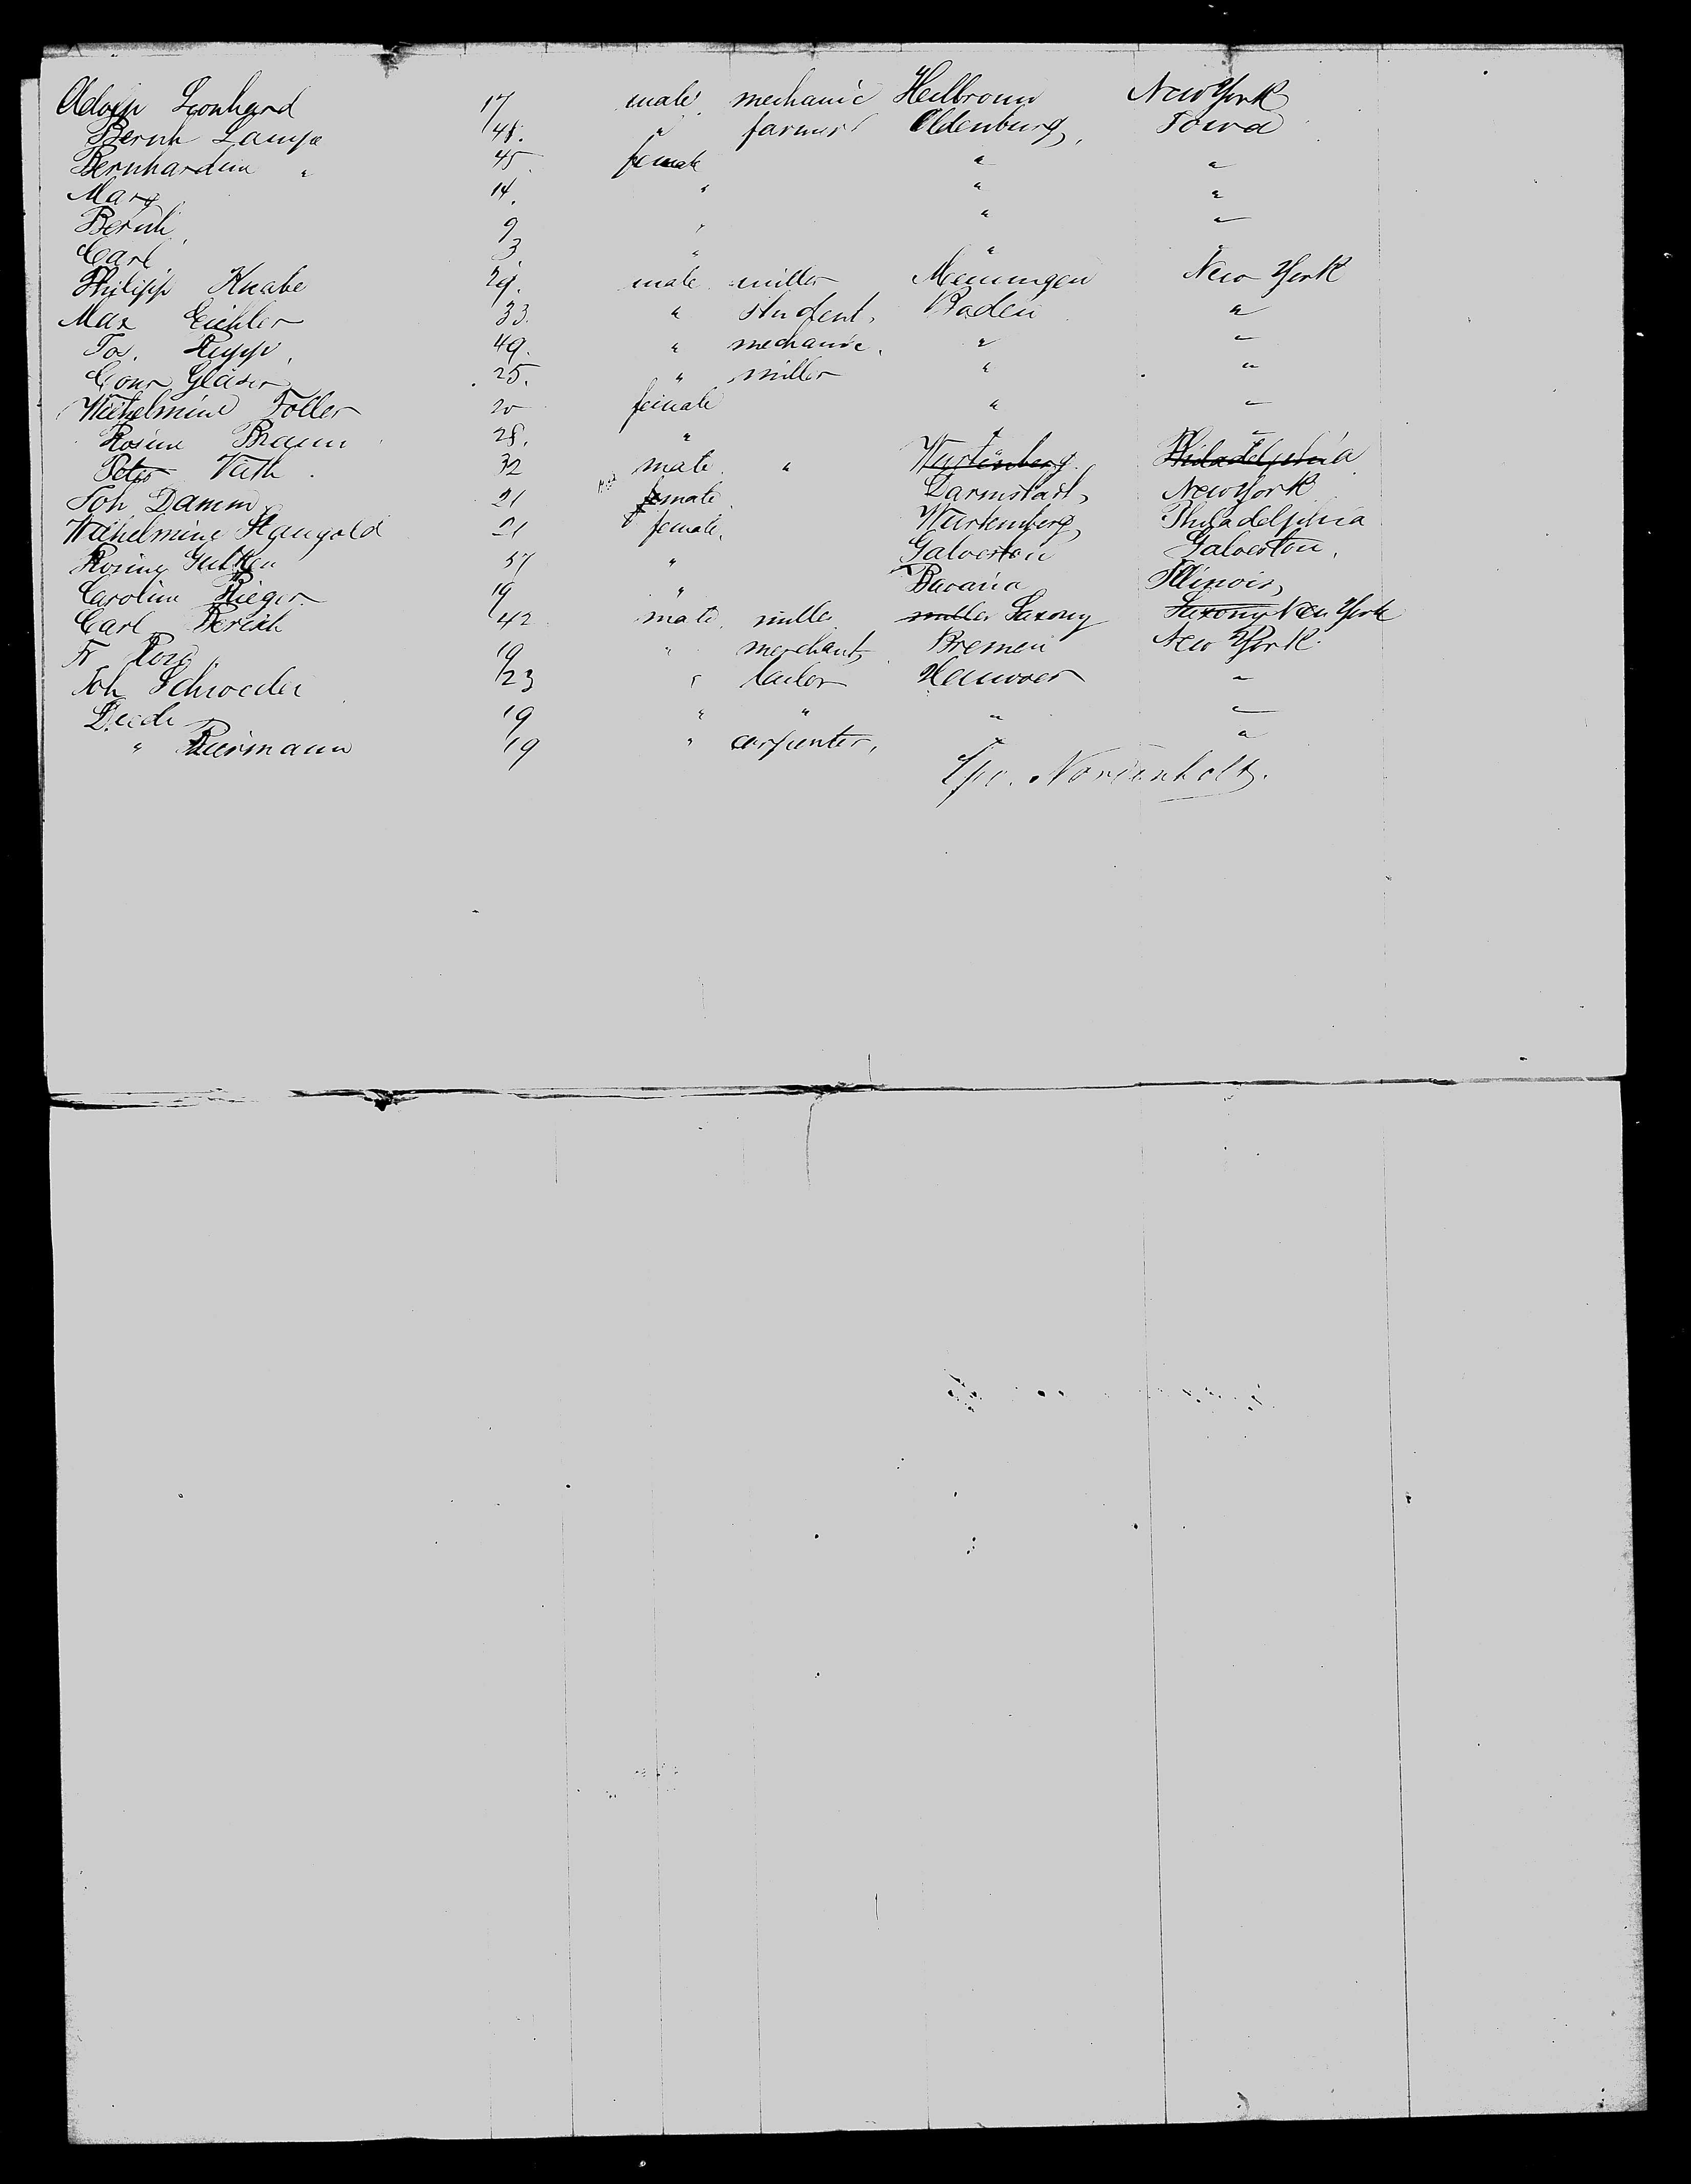 Adolph Leonhard 17 male mechanic Heilbronn New York
Bernh Lampe 48. " farmer Oldenburg, Iowa
Bernhardine " 45 female " "
Mary 14. " " "
Bernh 9 " " "
Carl 3. " " "
Philipp Knabe 29. male miller Meiningen New York
Max Eichler 33. " student, Baden "
Jos. Rupp, 49. " mechanic. " "
Conr Gläser 25. " miller " "
Wilhelmine Foller 20 female " "
Rosine Braun 28. " " "
Peter Veith 32 male " Wurtenberg Philadelphia
Joh Damm 21 female. Darmstadt, New York
Wilhelmine Stangold 21 female. Wurtemberg, Philadelphia
Rosine 57 " Galveston Galveston.
Caroline Rieger 19 " Bavaria Illinois,
Carl 42 male. miller miller Saxony Saxony New York
Fr. 19 " merchant, Bremen New York
Joh Schroeder 23 " tailor Hannover "
Diedr 19 " " " "
" Biermann 19 " carpenter, " "
Nordenholt.